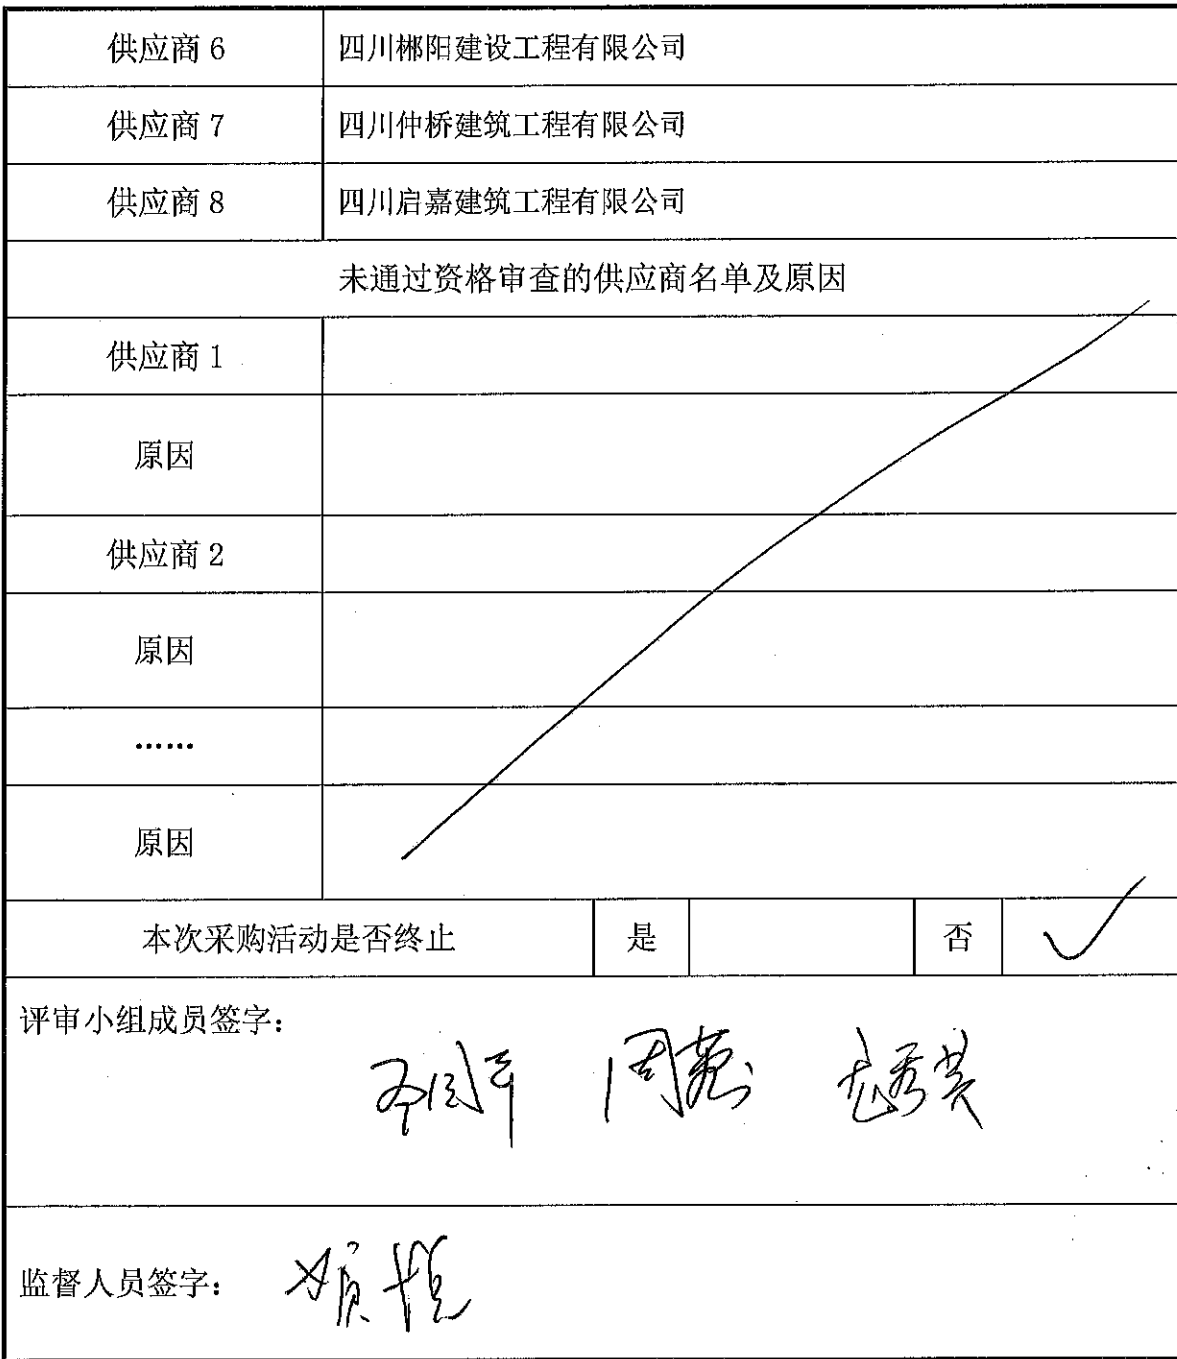 供应商 6 四川郴阳建设工程有限公司
供应商 7 四川仲桥建筑工程有限公司
供应商 8 四川启嘉建筑工程有限公司
未通过资格审查的供应商名单及原因
供应商 1
原因
供应商 2
原因
……
原因
本次采购活动是否终止 是 否 ✓
评审小组成员签字：
监督人员签字：